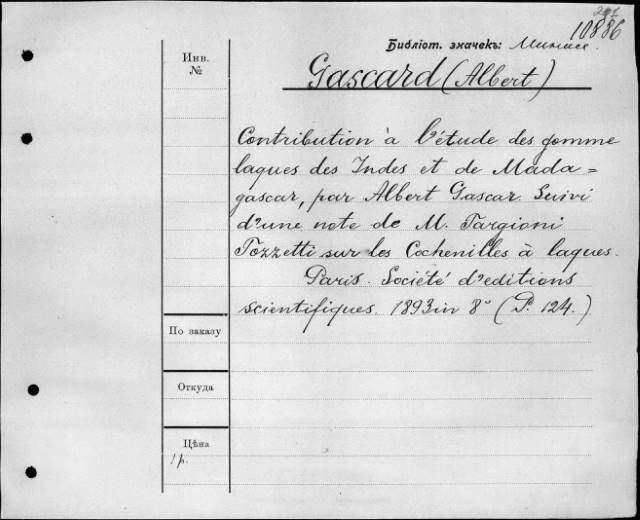 10886
Библіот. значекъ:
Инв.
№
Gascard (Albert)
Contribution à l'étude des gomme
laques des Indes et de Mada=
gascar, par Albert Gascar. Suivi
d'une note de M. Targioni
Tozzetti sur les Cochenilles à laques.
Paris. Société d'editions
scientifiques. 1893 in 8° (P. 124.)
По заказу
Откуда
Цѣна
1 р.